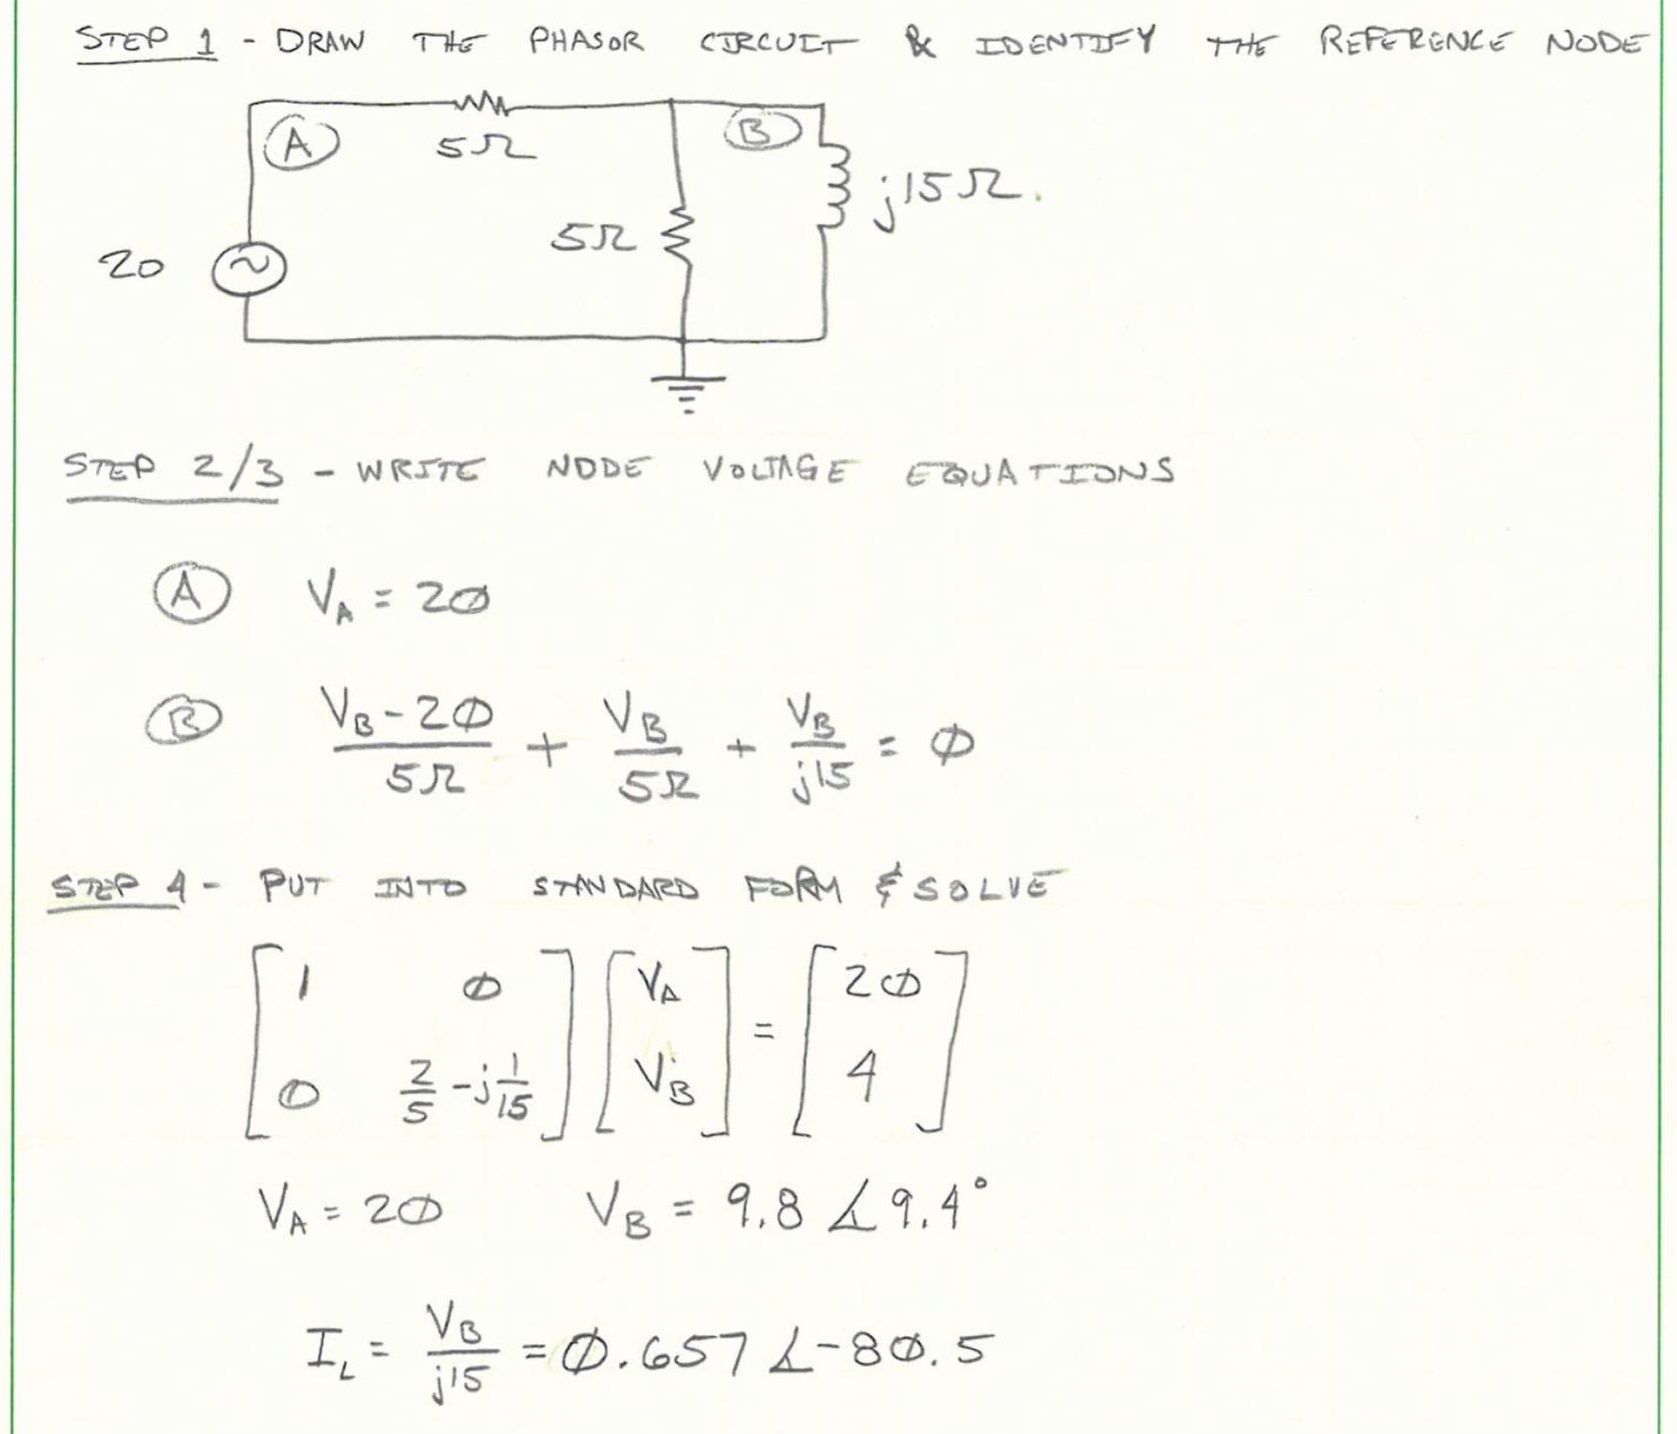 STEP 1 - DRAW THE PHASOR CIRCUIT & IDENTIFY THE REFERENCE NODE
A
5Ω
B
j15Ω.
5Ω
20
STEP 2/3 - WRITE NODE VOLTAGE EQUATIONS
A V_A = 20
B (V_B - 20)/5Ω + V_B/5Ω + V_B/j15 = 0
STEP 4 - PUT INTO STANDARD FORM & SOLVE
[1 0; 0 2/5 - j 1/15] [V_A; V_B] = [20; 4]
V_A = 20 V_B = 9.8 ∠9.4°
I_L = V_B/j15 = 0.657 ∠-80.5